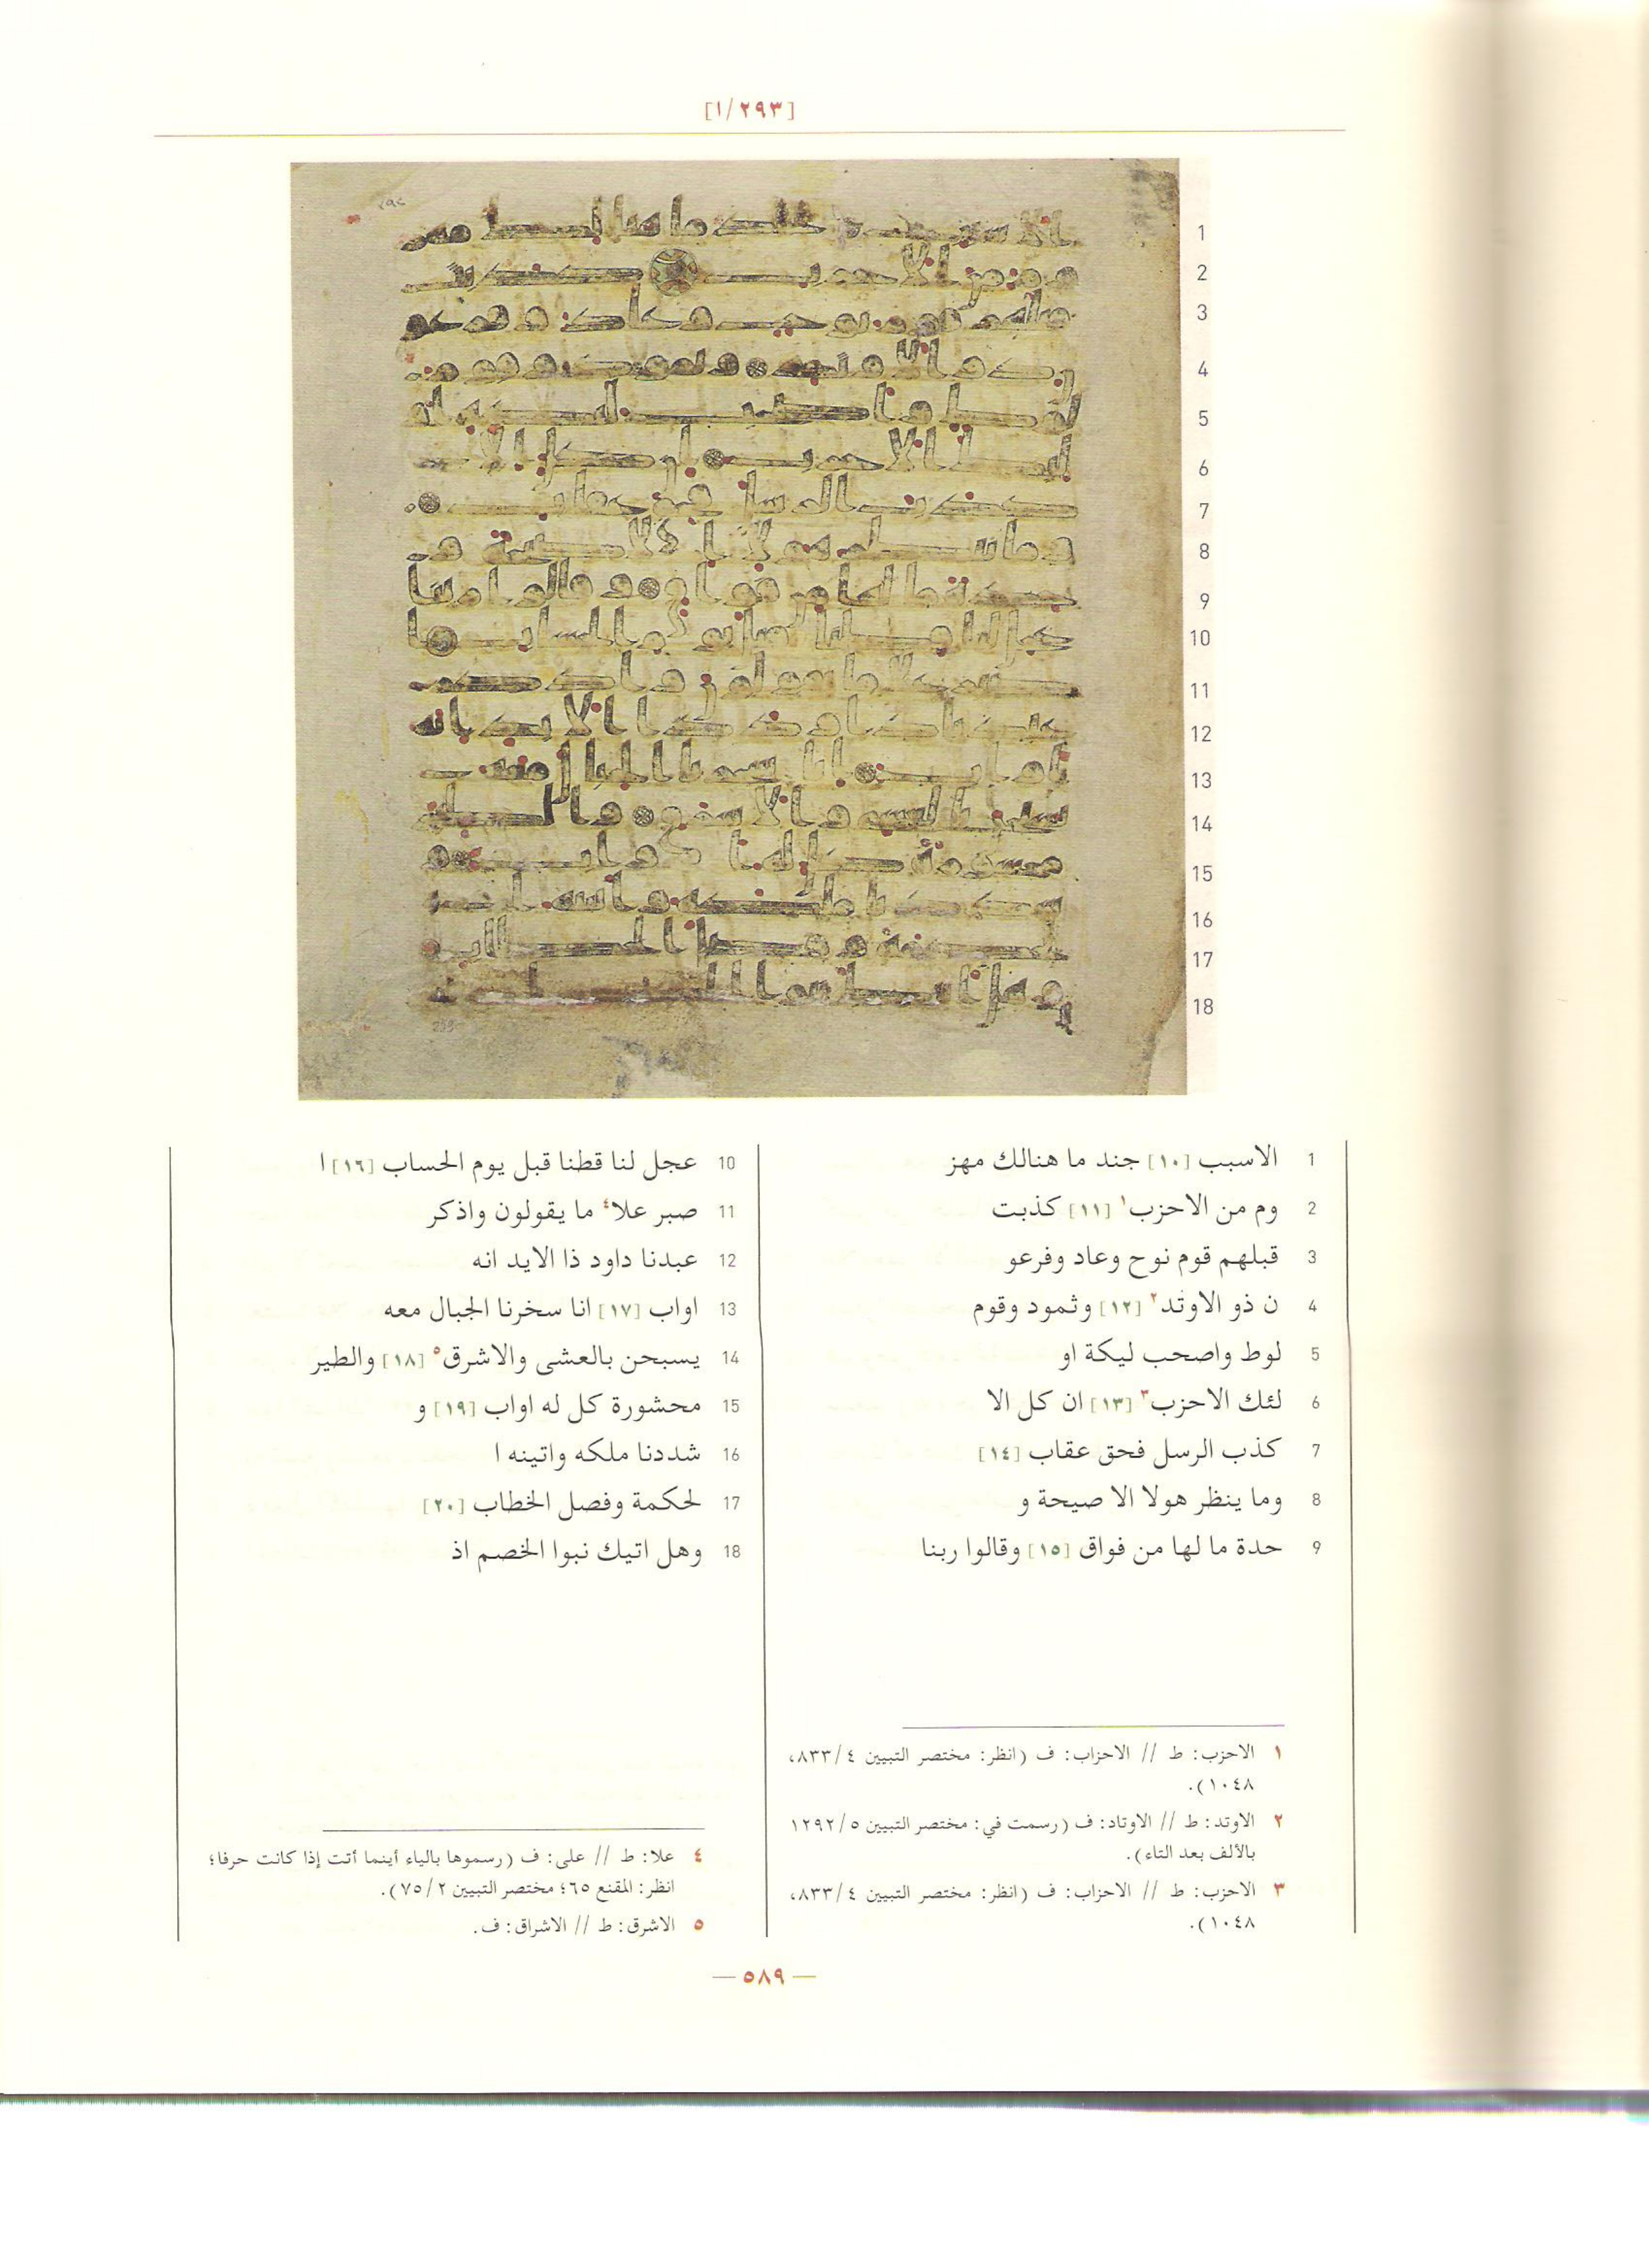 [١/٢٩٣]
1 الاسبب [١٠] جند ما هنالك مهز
2 وم من الاحزب١ [١١] كذبت
3 قبلهم قوم نوح وعاد وفرعو
4 ن ذو الاوتد٢ [١٢] وثمود وقوم
5 لوط واصحب ليكة او
6 لئك الاحزب٣ [١٣] ان كل الا
7 كذب الرسل فحق عقاب [١٤]
8 وما ينظر هولا الا صيحة و
9 حدة ما لها من فواق [١٥] وقالوا ربنا
10 عجل لنا قطنا قبل يوم الحساب [١٦] ا
11 صبر علا٤ ما يقولون واذكر
12 عبدنا داود ذا الايد انه
13 اواب [١٧] انا سخرنا الجبال معه
14 يسبحن بالعشى والاشرق٥ [١٨] والطير
15 محشورة كل له اواب [١٩] و
16 شددنا ملكه واتينه ا
17 لحكمة وفصل الخطاب [٢٠]
18 وهل اتيك نبوا الخصم اذ
١ الاحزب: ط // الاحزاب: ف (انظر: مختصر التبيين ٨٣٣/٤،
١٠٤٨).
٢ الاوتد: ط // الاوتاد: ف (رسمت في: مختصر التبيين ١٢٩٢/٥
بالألف بعد التاء).
٣ الاحزب: ط // الاحزاب: ف (انظر: مختصر التبيين ٨٣٣/٤،
١٠٤٨).
٤ علا: ط // على: ف (رسموها بالياء أينما أتت إذا كانت حرفا؛
انظر: المقنع ٦٥؛ مختصر التبيين ٧٥/٢).
٥ الاشرق: ط // الاشراق: ف.
— ٥٨٩ —